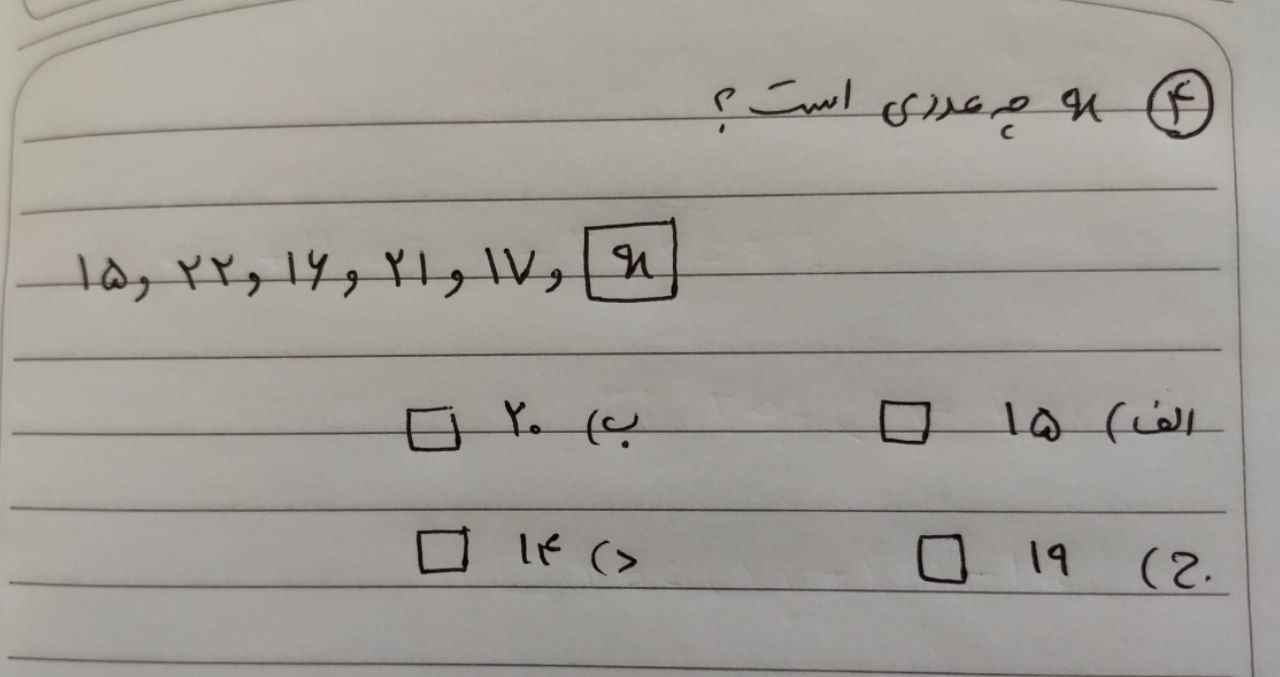 ۴ x چه عددی است؟
۱۵, ۲۲, ۱۶, ۲۱, ۱۷, x
الف) ۱۵ ب) ۲۰
ج) ۱۹ د) ۱۴